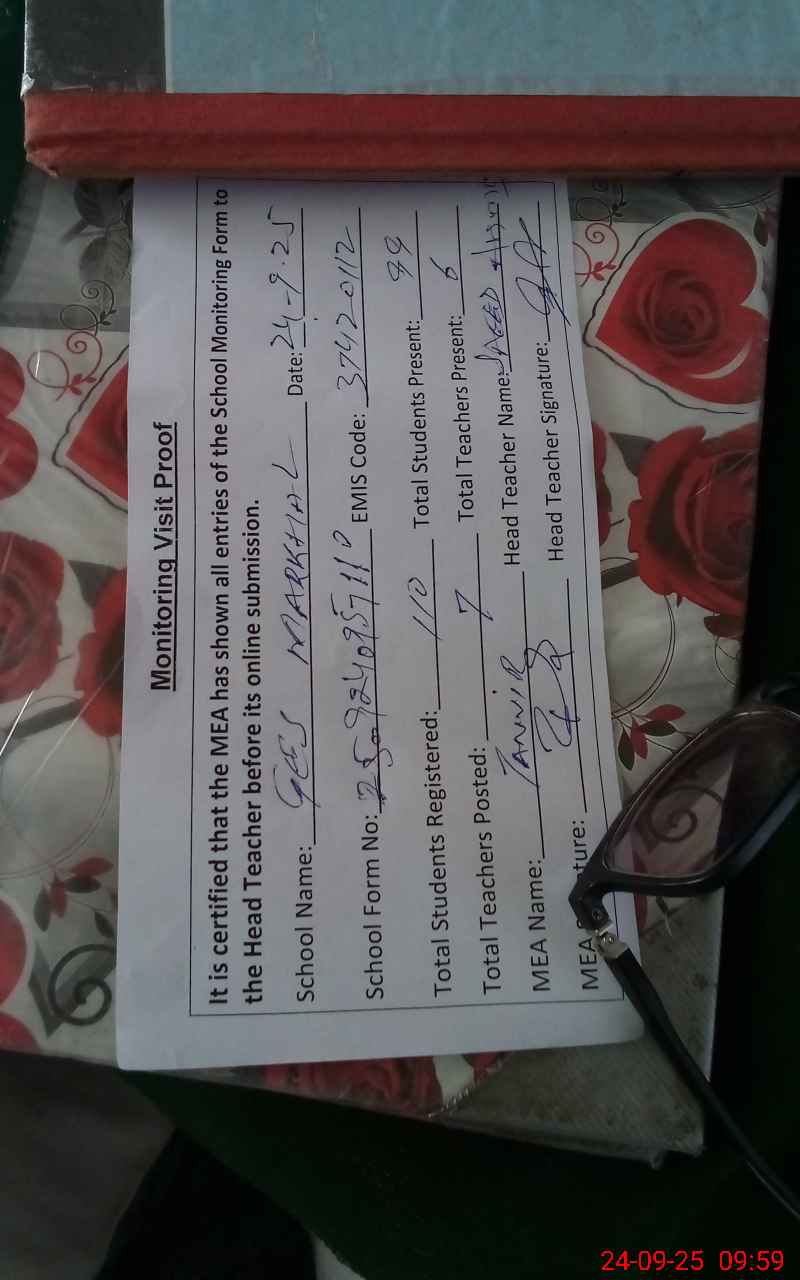 Monitoring Visit Proof
It is certified that the MEA has shown all entries of the School Monitoring Form to
the Head Teacher before its online submission.
School Name: GES MARKHAL Date: 24-9-25
School Form No: EMIS Code: 37420112
Total Students Registered: 110 Total Students Present: 99
Total Teachers Posted: 7 Total Teachers Present: 6
MEA Name: TANVIR Head Teacher Name: SAEED
MEA ture: Head Teacher Signature:
24-09-25 09:59